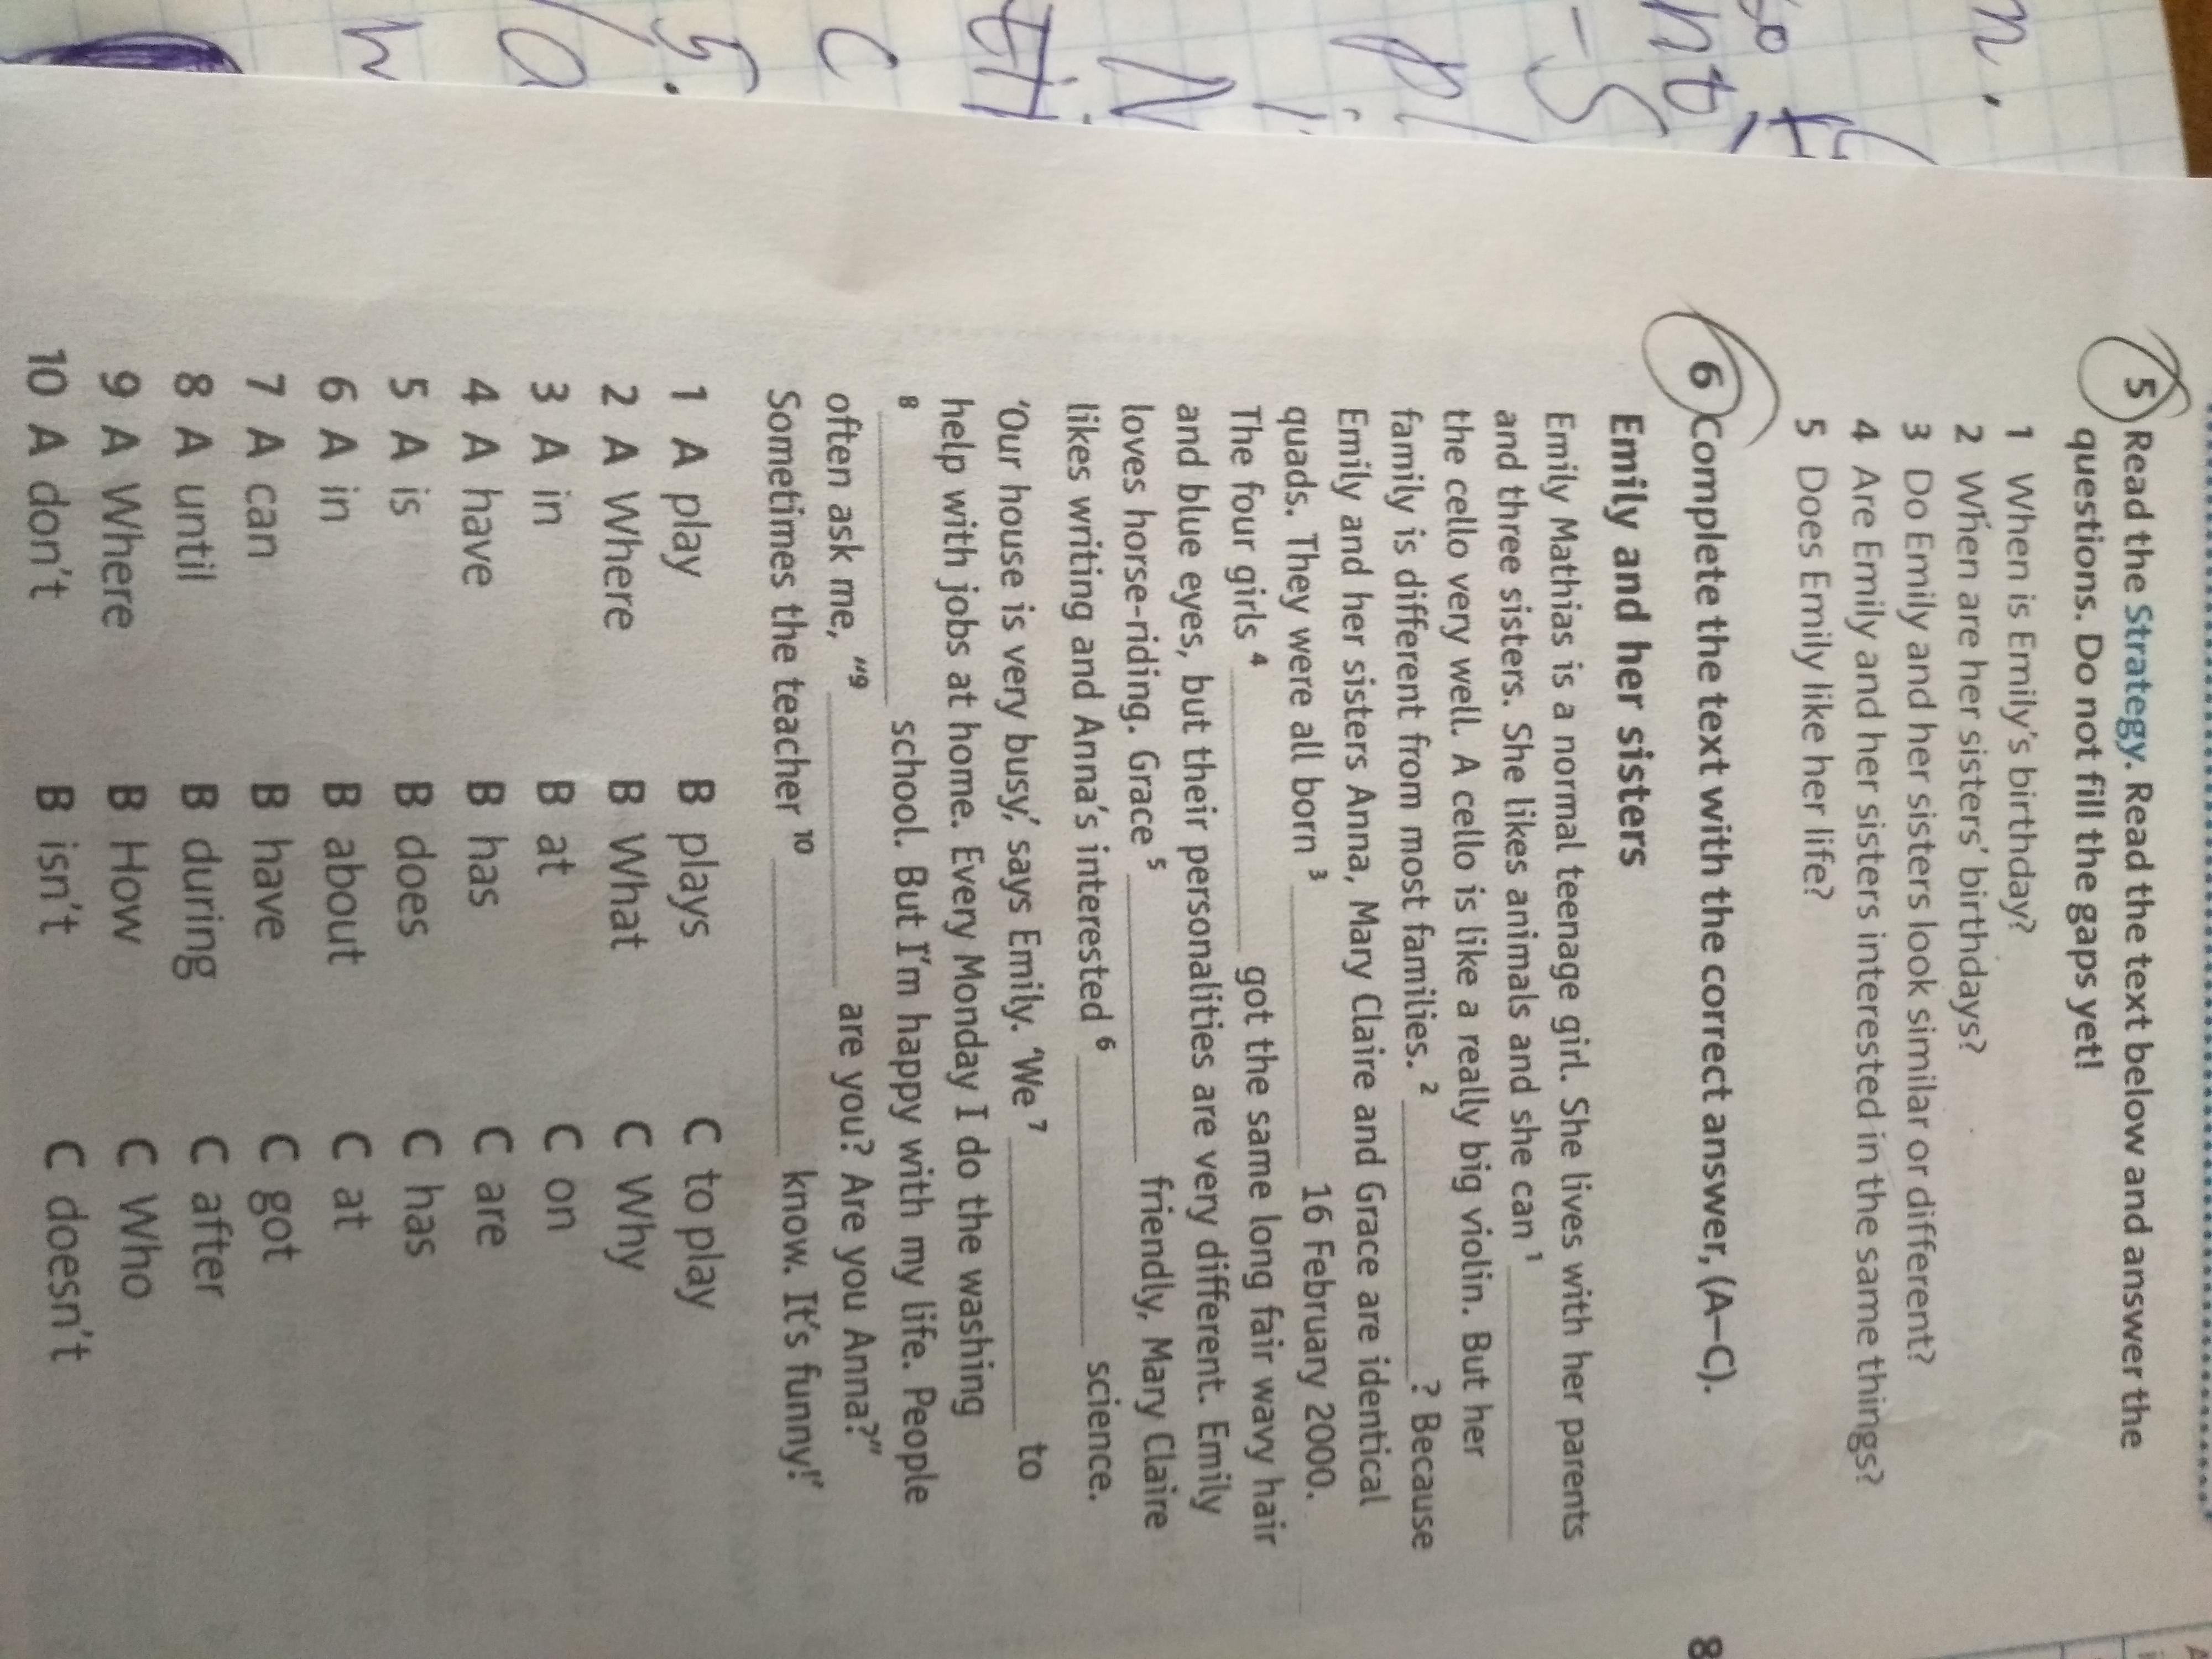 5 Read the Strategy. Read the text below and answer the
questions. Do not fill the gaps yet!
1 When is Emily's birthday?
2 When are her sisters' birthdays?
3 Do Emily and her sisters look similar or different?
4 Are Emily and her sisters interested in the same things?
5 Does Emily like her life?
6 Complete the text with the correct answer, (A–C).
Emily and her sisters
Emily Mathias is a normal teenage girl. She lives with her parents
and three sisters. She likes animals and she can 1 ________
the cello very well. A cello is like a really big violin. But her
family is different from most families. 2 ________? Because
Emily and her sisters Anna, Mary Claire and Grace are identical
quads. They were all born 3 ________ 16 February 2000.
The four girls 4 ________ got the same long fair wavy hair
and blue eyes, but their personalities are very different. Emily
loves horse-riding. Grace 5 ________ friendly, Mary Claire
likes writing and Anna's interested 6 ________ science.
'Our house is very busy,' says Emily. 'We 7 ________ to
help with jobs at home. Every Monday I do the washing
8 ________ school. But I'm happy with my life. People
often ask me, "9 ________ are you? Are you Anna?"
Sometimes the teacher 10 ________ know. It's funny!'
1 A play B plays C to play
2 A Where B What C Why
3 A in B at C on
4 A have B has C are
5 A is B does C has
6 A in B about C at
7 A can B have C got
8 A until B during C after
9 A Where B How C Who
10 A don't B isn't C doesn't
8